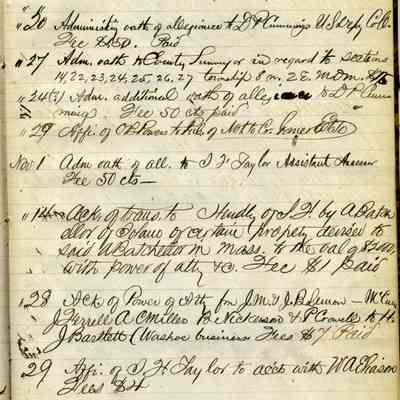 " 30 Administ'g oath of allegiance to D P Cummings U S Dep Co
Fee $1.50. Paid
" 27 Adm. oath to County Surveyor in regard to sections
14, 22, 23, 24, 25, 26, 27 township 8 n. 2 E. M.D.M.
" 24 Adm. additional oath of alleg to D P Cum
mings. Fee 50 cts paid
" 29 Affi. of to of Not to Cr.
Nov 1 Adm oath of all. to J H Taylor Assistant Assessor
Fee 50 cts—
" 14 Ack of trans. to Hundly of S. H by A Batch
ellor of Solano of certain property devised to
said A Batchellor in Mass. to the val of $2000,
with power of atty &c. Fee $1 paid
" 28 Ack of Power of Att from J. M. & J. B. Lemon — McCu
J. Ferrell A C Miller B Nickerson & P Cravell to H.
J Bartlett (Washoe business Fees $7 Paid
29 Affi. of J H Taylor to acct with W A Eliason
Fees $4